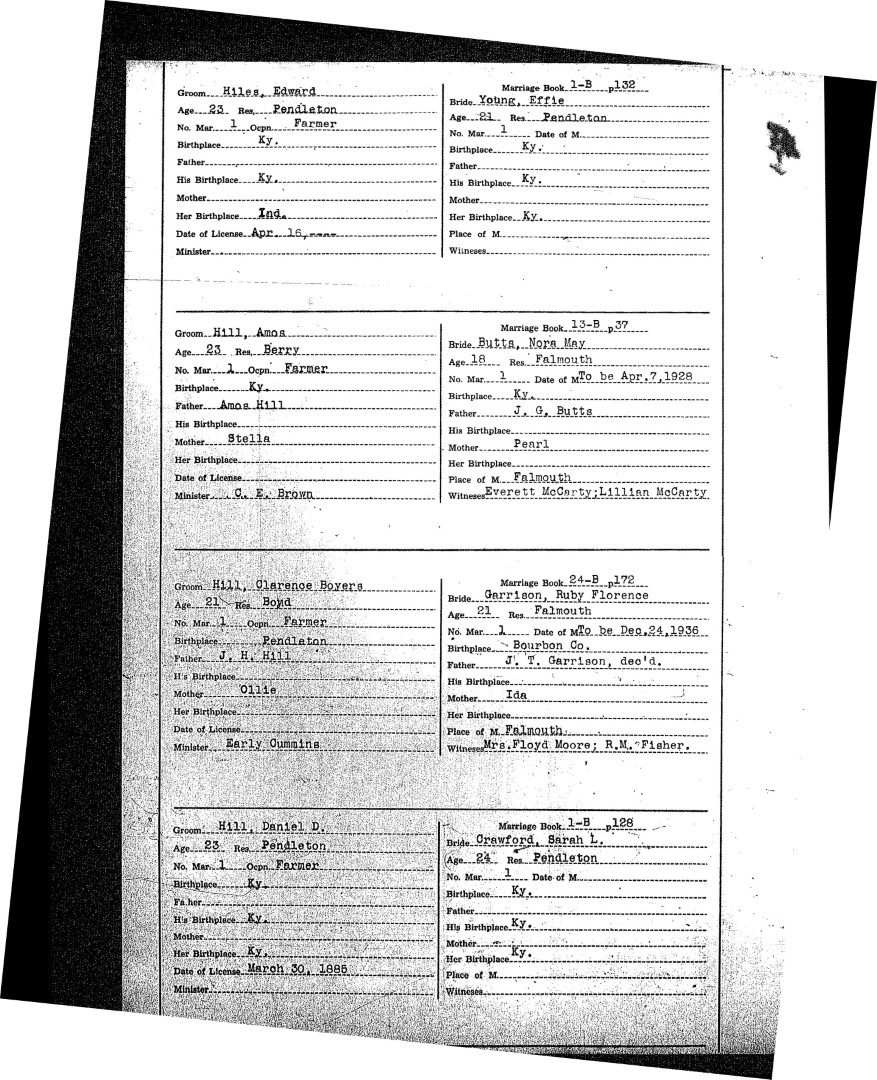 Groom Hiles, Edward
Age 23 Res. Pendleton
No. Mar. 1 Ocpn. Farmer
Birthplace Ky.
Father
His Birthplace Ky.
Mother
Her Birthplace Ind.
Date of License Apr. 16,----
Minister
Marriage Book 1-B p132
Bride Young, Effie
Age 21 Res Pendleton
No. Mar. 1 Date of M.
Birthplace Ky.
Father
His Birthplace Ky.
Mother
Her Birthplace Ky.
Place of M.
Witneses
Groom Hill, Amos
Age 23 Res. Berry
No. Mar. 1 Ocpn. Farmer
Birthplace Ky.
Father Amos Hill
His Birthplace
Mother Stella
Her Birthplace
Date of License
Minister C. E. Brown
Marriage Book 13-B p37
Bride Butts, Nora May
Age 18 Res. Falmouth
No. Mar. 1 Date of M To be Apr.7,1928
Birthplace Ky.
Father J. G. Butts
His Birthplace
Mother Pearl
Her Birthplace
Place of M. Falmouth
Witneses Everett McCarty;Lillian McCarty
Groom Hill, Clarence Boyers
Age 21 Res. Boyd
No. Mar. 1 Ocpn. Farmer
Birthplace Pendleton
Father J. H. Hill
H's Birthplace
Mother Ollie
Her Birthplace
Date of License
Minister Early Cummins
Marriage Book 24-B p172
Bride Garrison, Ruby Florence
Age 21 Res. Falmouth
No. Mar. 1 Date of M To be Dec.24,1936
Birthplace Bourbon Co.
Father J. T. Garrison, dec'd.
His Birthplace
Mother Ida
Her Birthplace
Place of M. Falmouth
Witneses Mrs.Floyd Moore; R.M. Fisher.
Groom Hill, Daniel D.
Age 23 Res. Pendleton
No. Mar. 1 Ocpn. Farmer
Birthplace Ky.
Fa.her
H's Birthplace Ky.
Mother
Her Birthplace Ky.
Date of License March 30, 1885
Minister
Marriage Book 1-B p128
Bride Crawford, Sarah L.
Age 24 Res. Pendleton
No. Mar. 1 Date of M.
Birthplace Ky.
Father
His Birthplace Ky.
Mother
Her Birthplace Ky.
Place of M.
Witneses